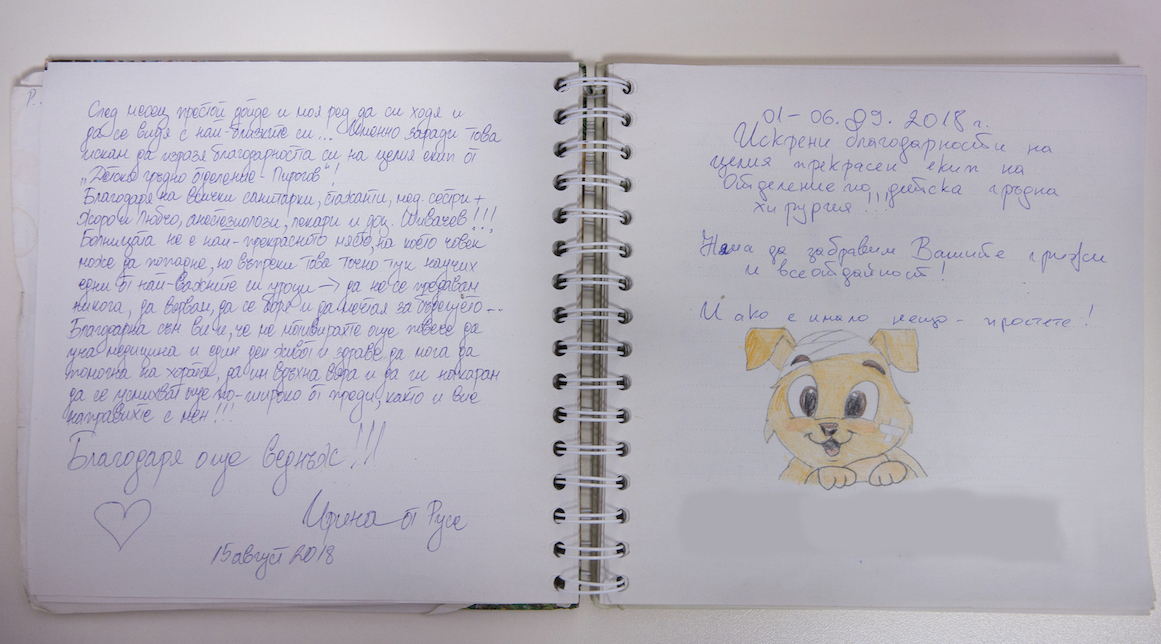 След месец престой дойде и моя ред да си ходя и
да се видя с най-близките си... Именно заради това
искам да изразя благодарността си на целия екип от
„Детско гръдно отделение - Пирогов"!
Благодаря на всички санитарки, стажанти, мед. сестри +
Жоро и Любчо, анестезиолози, лекари и доц. Шивачев!!!
Болницата не е най-прекрасното място, на което човек
може да попадне, но въпреки това точно тук научих
едни от най-важните си уроци → да не се предавам
никога, да вярвам, да се боря и да мечтая за бъдещето...
Благодарна съм ви и, че ме мотивирахте още повече да
уча медицина и един ден живот и здраве да мога да
помогна на хората, да им връхна вяра и да ги накарам
да се усмихват още по-широко от преди, както и вие
направихте с мен!!!
Благодаря още веднъж!!!
Ирена от Русе
15 август 2018
01-06.09.2018г.
Искрени благодарности на
целия прекрасен екип на
Отделение по детска гръдна
хирургия!!!
Няма да забравим Вашите грижи
и всеотдайност!
И ако е имало нещо - простете!